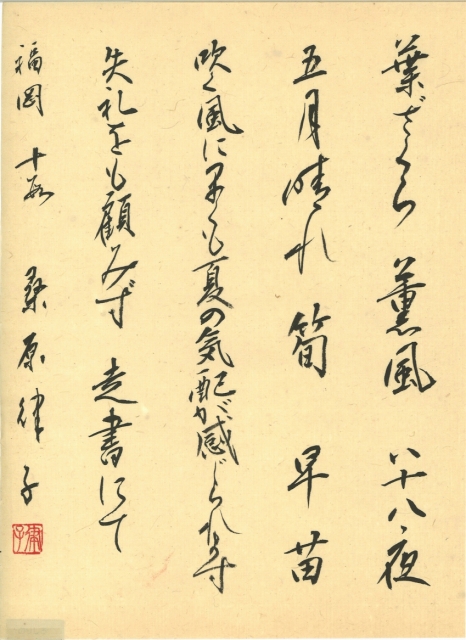 葉ざくら 薫風 八十八夜
五月晴れ 筍 早苗
吹く風に早くも夏の気配が感じられます
失礼をも顧みず 走書にて
福岡 十段 桑原律子